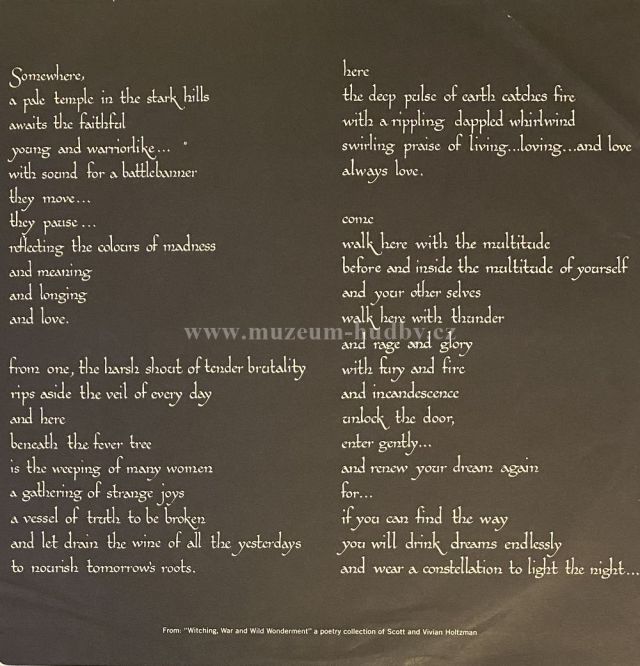 Somewhere,
a pale temple in the stark hills
awaits the faithful
young and warriorlike...
with sound for a battlebanner
they move...
they pause...
reflecting the colours of madness
and meaning
and longing
and love.
from one, the harsh shout of tender brutality
rips aside the veil of every day
and here
beneath the fever tree
is the weeping of many women
a gathering of strange joys
a vessel of truth to be broken
and let drain the wine of all the yesterdays
to nourish tomorrow's roots.
here
the deep pulse of earth catches fire
with a rippling dappled whirlwind
swirling praise of living...loving...and love
always love.
come
walk here with the multitude
before and inside the multitude of yourself
and your other selves
walk here with thunder
and rage and glory
with fury and fire
and incandescence
unlock the door,
enter gently...
and renew your dream again
for...
if you can find the way
you will drink dreams endlessly
and wear a constellation to light the night...
www.muzeum-hudby.cz
From: "Witching, War and Wild Wonderment" a poetry collection of Scott and Vivian Holtzman